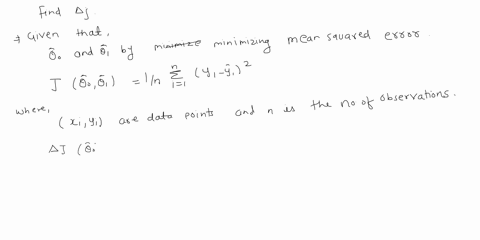 Find Δj
→ Given that,
θ̂₀ and θ̂₁ by minimizing mean squared error.
J (θ̂₀, θ̂₁) = 1/n Σᵢ₌₁ⁿ (yᵢ - ŷᵢ)²
where,
(xi, yi) are data points and n is the no of observations.
ΔJ (θ̂